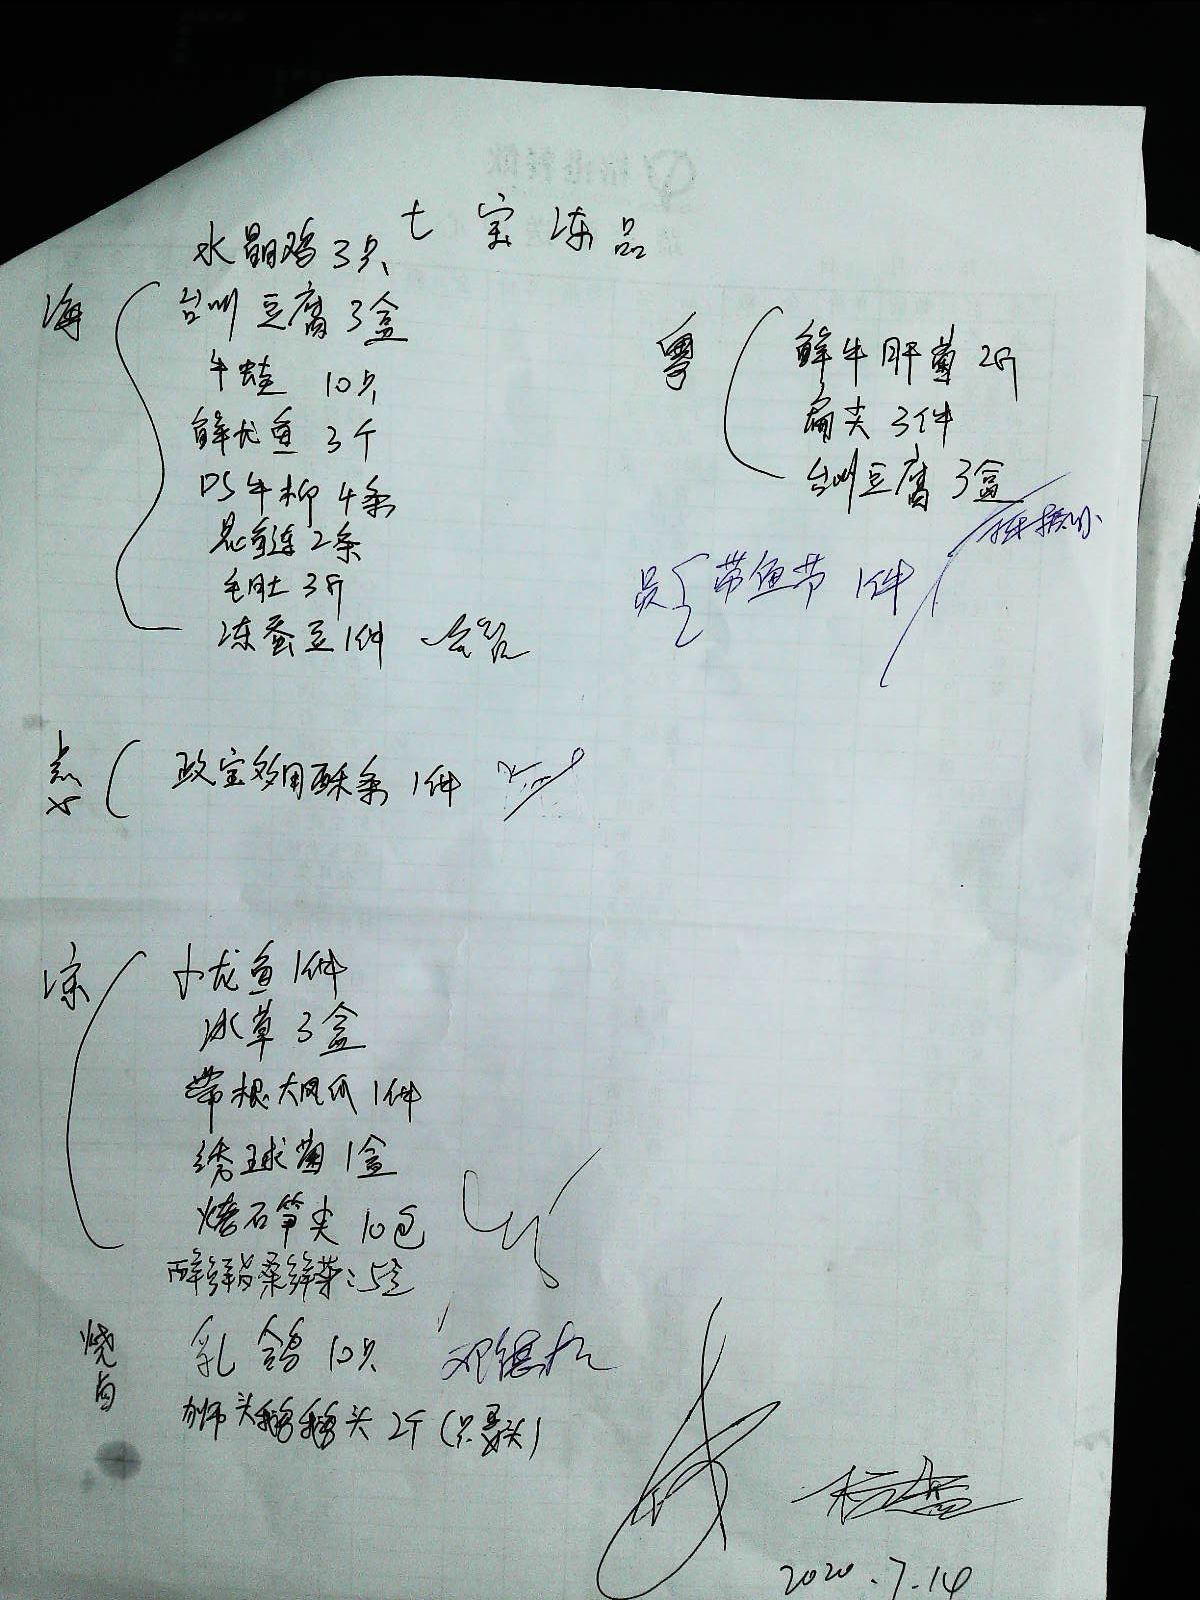 七宝冻品
水晶鸡3只
海
台州豆腐3盒
牛蛙 10只
鲜龙鱼 3个
D5牛柳4条
鲢2条
毛肚3斤
冻蚕豆1件
粤
鲜牛肝菌 2斤
扁尖 3件
台州豆腐 3盒
员 带鱼节 1件
点心
政宝多用酥条 1件
凉
小龙鱼1件
冰草3盒
带根大凤爪1件
绣球菌1盒
烤石笋尖 10包
5盒
烧卤
乳鸽10只 邓
狮头鹅鹅头2个(只要头)
2020.7.14